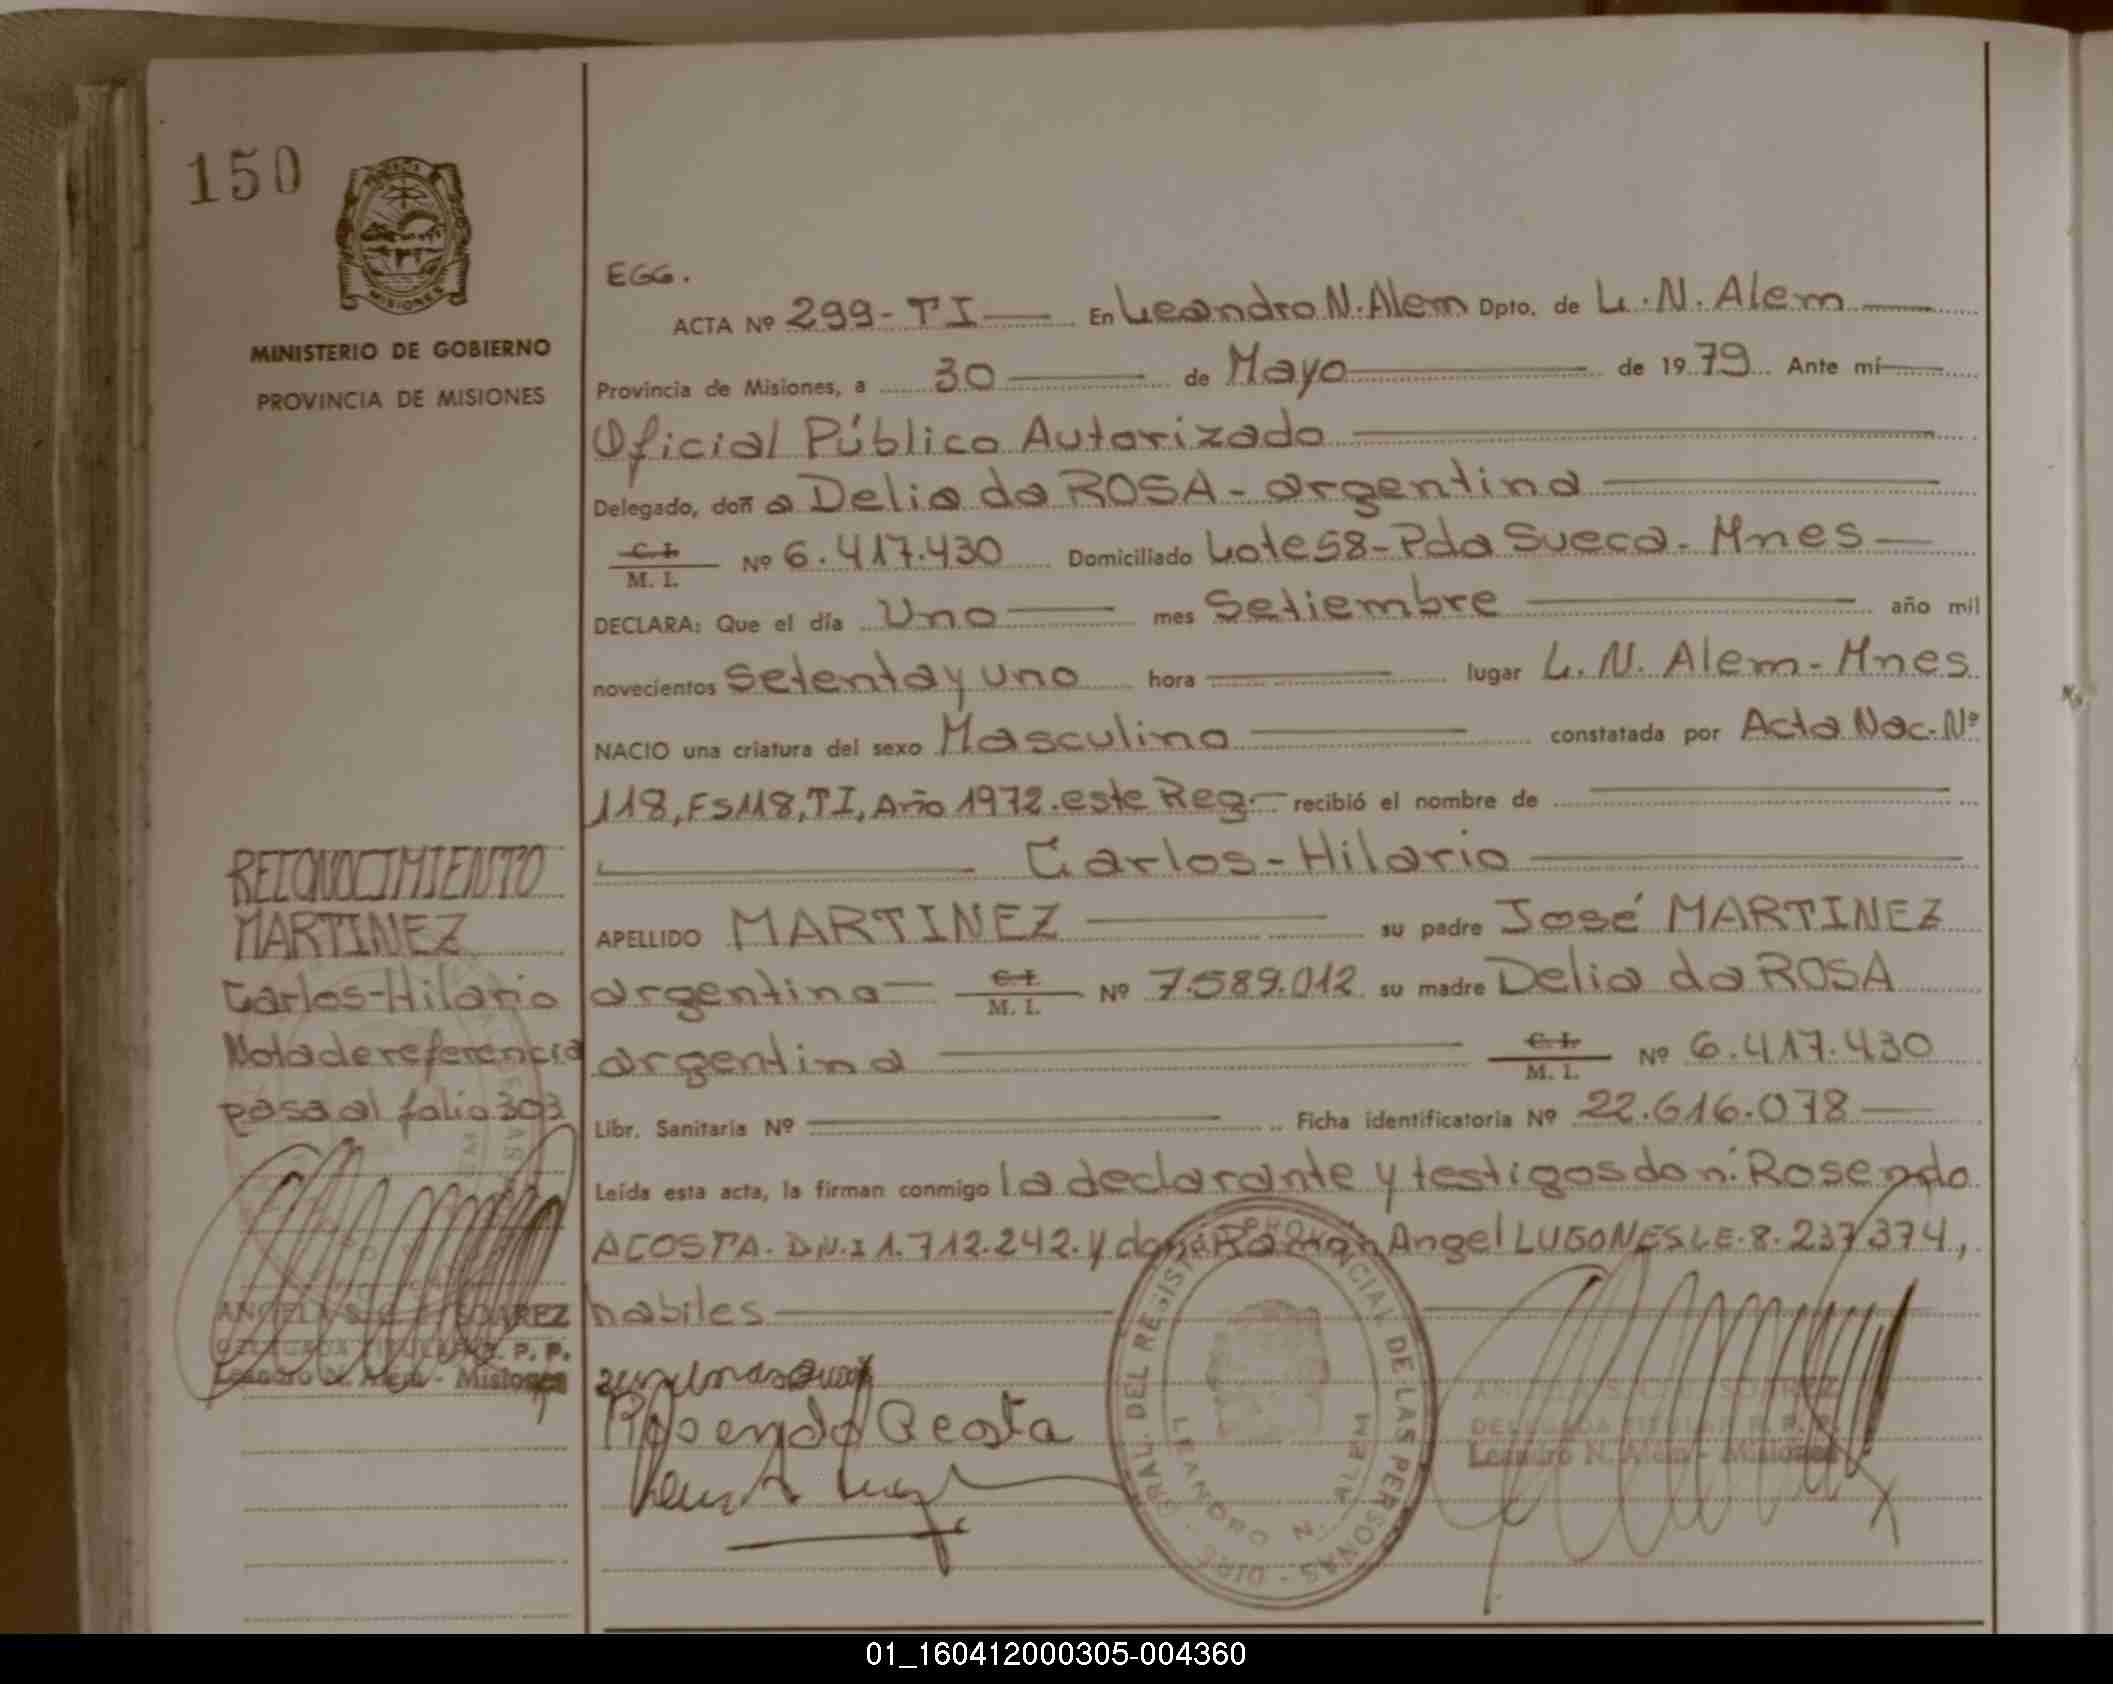 150
MISIONES
MINISTERIO DE GOBIERNO
PROVINCIA DE MISIONES
RECONOCIMIENTO
MARTINEZ
Carlos-Hilario
Nota de referencia
pasa al folio 303
SOAREZ
DELEGADA TITULAR R. P. P.
Leandro N. Alem - Misiones
EGG.
ACTA Nº 299-TI En Leandro N. Alem Dpto. de L. N. Alem
Provincia de Misiones, a 30 de Mayo de 1979 Ante mí
Oficial Público Autorizado
Delegado, doñ a Delia da ROSA - argentina
C. I. / M. I. Nº 6.417.430 Domiciliado Lote 58-Pda Sueca-Mnes
DECLARA: Que el día Uno mes Setiembre año mil
novecientos setenta y uno hora lugar L. N. Alem-Mnes
NACIO una criatura del sexo Masculino constatada por Acta Nac. Nº
118, Fs 118, TI, Año 1972. este Reg. recibió el nombre de
Carlos-Hilario
APELLIDO MARTINEZ su padre José MARTINEZ
argentino C. I. / M. I. Nº 7.589.012 su madre Delia da ROSA
argentina C. I. / M. I. Nº 6.417.430
Libr. Sanitaria Nº Ficha identificatoria Nº 22.616.078
Leída esta acta, la firman conmigo la declarante y testigos don: Rosendo
ACOSTA. D.N.I 1.712.242. y don Ramón Angel LUGONES LE. 8.237.374,
habiles
Rosendo Acosta
DIRE. GRAL. DEL REGISTRO PROVINCIAL DE LAS PERSONAS
LEANDRO N. ALEM
SOAREZ
DELEGADA TITULAR R. P. P.
Leandro N. Alem - Misiones
01_160412000305-004360